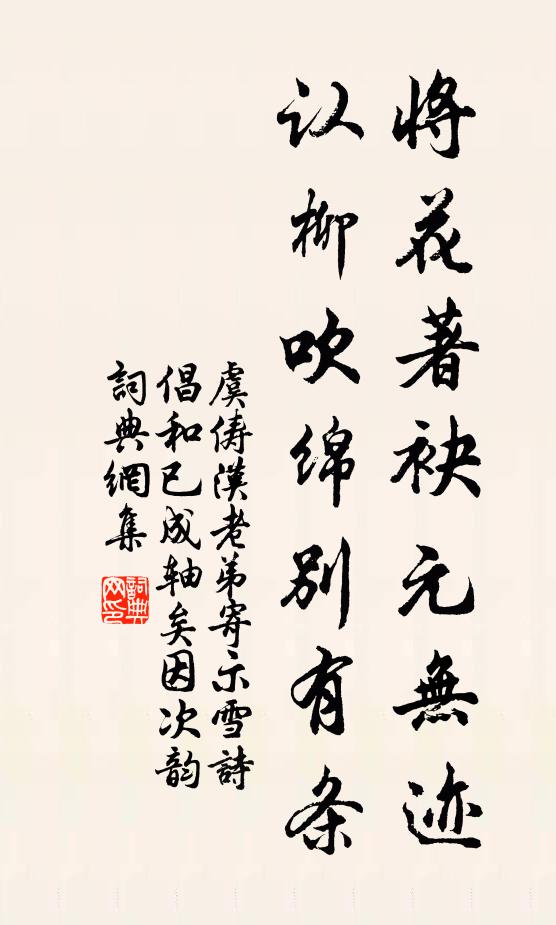 将花著袂元無迹
认柳吹绵别有条
虞俦漢老弟寄示雪詩
倡和已成轴矣因次韵
詞典網集
詞典
网印